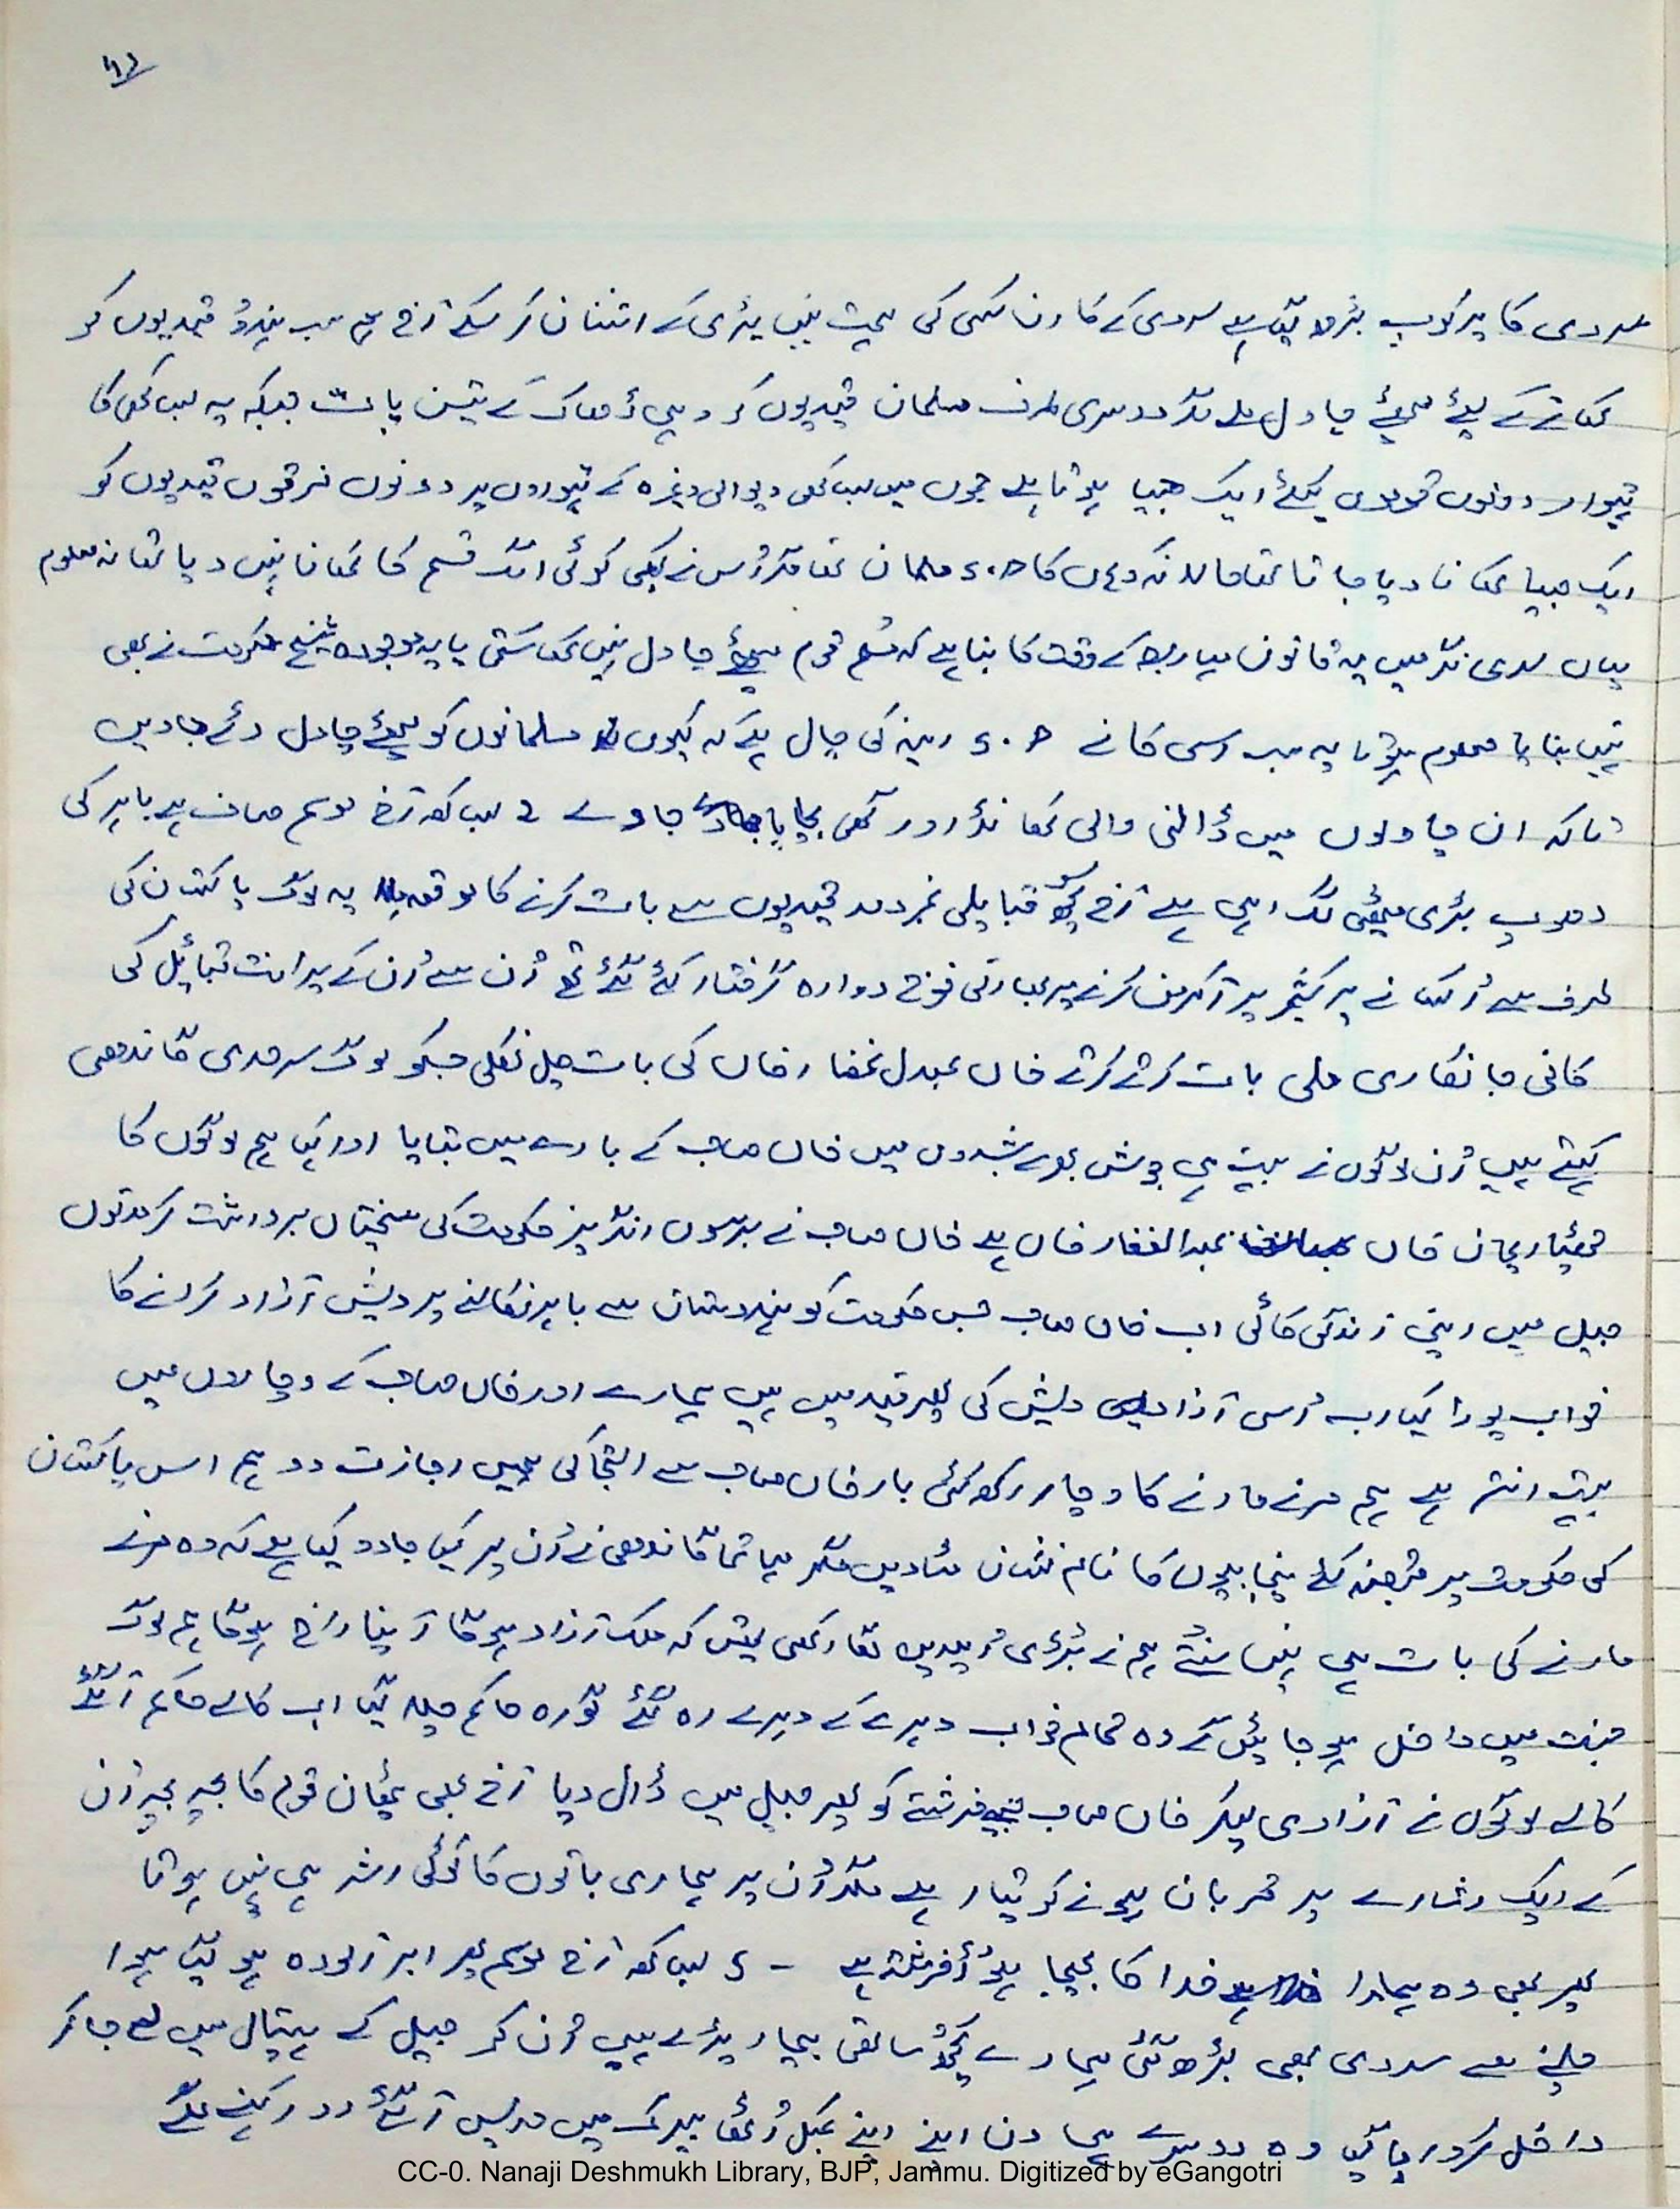 سردی کا پرکوپ بڑھ گیا ہے سردی کے کارن کسی کی ہمت نہیں پڑی کے اشنان کر سکے آج ہم سب ہندو قیدیوں کو
کھانے کے لیئے میٹھے چاول ملے مگر دوسری طرف مسلمان قیدیوں کو وہی
تیوار دونوں قوموں کیلئے ایک جیسا ہوتا ہے جموں میں دیوالی وغیرہ کے تیواروں پر دونوں فرقوں قیدیوں کو
ایک جیسا کھانا دیا جاتا تھا حالانکہ وہاں کا مسلمان تھا مگر اُس نے کبھی کوئی الگ قسم کا کھانا نہیں دیا تھا نہ معلوم
یہاں سری نگر میں یہ قانون کے وقت کا بنا ہے کہ مُسلم قوم میٹھے چاول نہیں کھا سکتی یا یہ موجودہ شیخ حکومت نے بھی
نہیں بنایا معلوم ہوتا یہ سب رسی کانے رینہ کی چال ہے کہ کیوں مسلمانوں کو میٹھے چاول دئے جاویں
تاکہ ان چاولوں میں ڈالنی والی کھانڈ اور گھی بچایا جاوے آج موسم صاف ہے باہر کی
دھوپ بڑی میٹھی لگ رہی ہے آج کچھ قبایلی نمردمد قیدیوں سے بات کرنے کا موقعہ ملا یہ لوگ پاکستان کی
طرف سے اُکسانے پر کشمیر پر آکرمن کرنے پر بھارتی فوج دوارہ گرفتار کئے گئے تھے اُن سے اُن کے پرانت قبائیل کی
کافی جانکاری ملی بات کرتے کرتے خاں عبدل غفار خاں کی بات چل نکلی جسکو لوگ سرحدی گاندھی
کہتے ہیں اُن لوگوں نے بہت ہی جوش بھرے شبدوں میں خاں صاحب کے بارے میں بتایا اور کہا ہم لوگوں کا
خاں عبدالغفار خاں ہے خاں صاحب نے برسوں انگریز حکومت کی سختیاں برداشت کر مدتوں
جیل میں اپنی زندگی کاٹی اب خاں صاحب جس حکومت کو ہندوستان سے باہر نکالنے پر دیش آزاد کرانے کا
خواب پورا کیا اب اُسی آزاد دیش کی پھر قید میں ہیں ہمارے اور خاں صاحب کے وچاروں میں
بہت انتر ہے ہم مرنے مارنے کا وچار رکھ کئی بار خاں صاحب سے التجا کی ہمیں اجازت دو ہم اس پاکستان
کی حکومت پر قبضہ کر کے پنجابیوں کا نام نشان مٹا دیں مگر مہاتما گاندھی نے اُن پر کیا جادو کیا ہے کہ وہ مرنے
مارنے کی بات ہی نہیں سنتے ہم نے بڑی اُمیدیں لگا رکھی تھیں کہ ملک آزاد ہوگا اپنا راج ہوگا ہم لوگ
جنت میں داخل ہو جائیں گے وہ تمام خواب دھرے کے دھرے رہ گئے گورہ حاکم چلا گیا اب کالے حاکم آگئے
کالے لوگوں نے آزادی لیکر خاں صاحب جیسے فرشتے کو پھر جیل میں ڈال دیا آج بھی پٹھان قوم کا بچہ بچہ اُن
کے ایک اشارے پر قربان ہونے کو تیار ہے مگر اُن پر ہماری باتوں کا کوئی اثر ہی نہیں ہوتا
پھر بھی وہ ہمارا خدا کا بھیجا ہوُا فرشتہ ہے - آج موسم پھر ابر آلودہ ہو گیا ہوا
چلنے سے سردی بھی بڑھ گئی ہمارے کچھ ساتھی بیمار پڑے ہیں اُن کو جیل کے ہسپتال میں لے جا کر
داخل کروا یا گیا وہ دوسرے ہی دن اپنے اپنے کمبل اُٹھا بیرک میں واپس آگئے اور کہنے لگے
CC-0. Nanaji Deshmukh Library, BJP, Jammu. Digitized by eGangotri